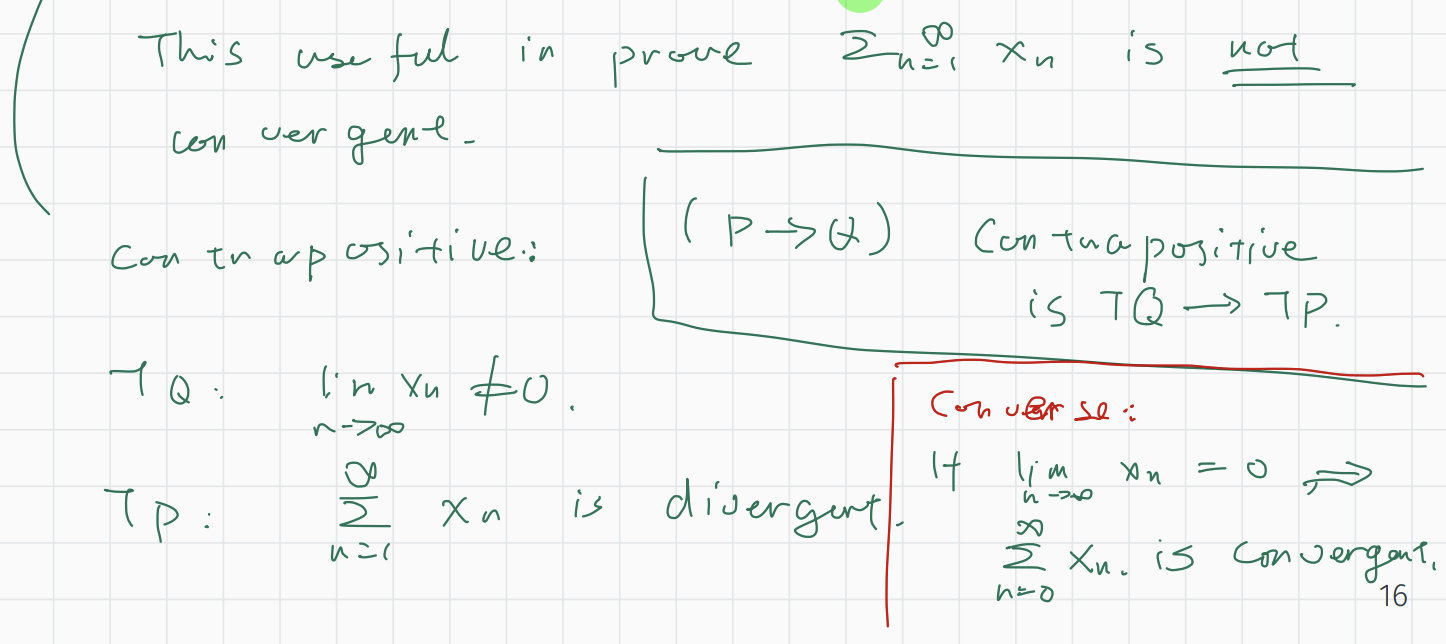 This useful in prove ∑_{n=1}^∞ x_n is not
convergent.
(P→Q) Contrapositive
is ¬Q → ¬P.
Contrapositive:
¬Q: lim_{n→∞} x_n ≠ 0.
¬P: ∑_{n=1}^∞ x_n is divergent.
Converse:
If lim_{n→∞} x_n = 0 ⇒
∑_{n=0}^∞ x_n. is convergent.
16